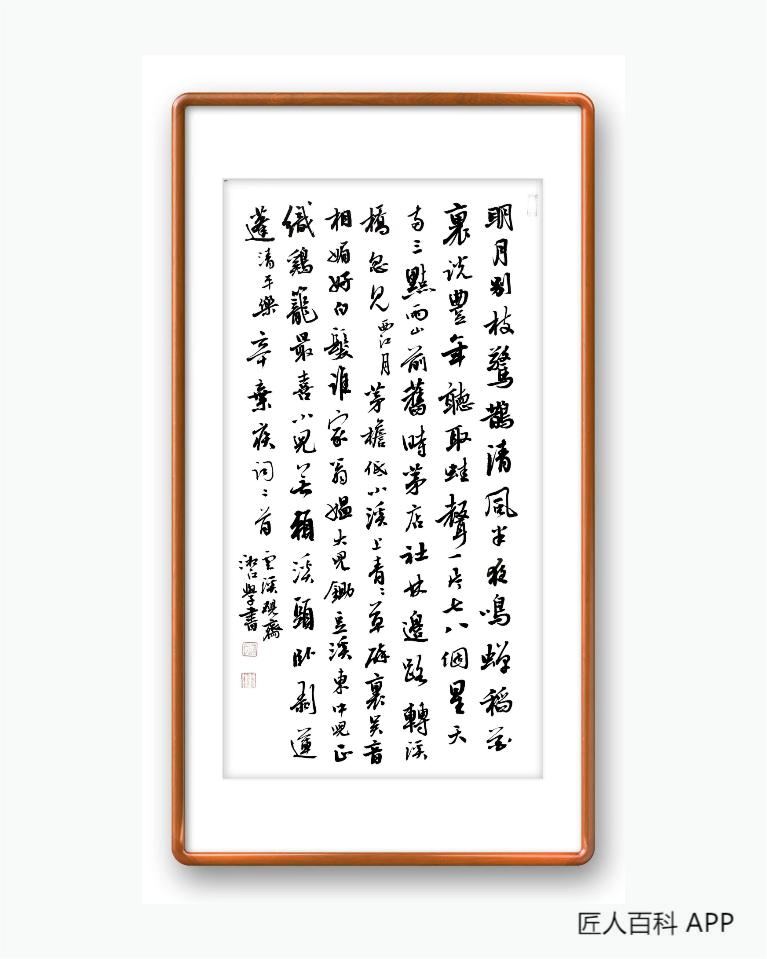 明月别枝驚鵲清風半夜鳴蟬稻花
裏説豐年聽取蛙聲一片七八個星天
三點雨山前舊時茅店社林邊路轉溪
橋忽見西江月茅檐低小溪上青〻草醉裏吴音
相媚好白髮誰家翁媪大兒鋤豆溪東中兒正
織鷄籠最喜小兒無賴溪頭卧剥蓮
蓬清平樂辛棄疾詞二首
雲溪硯齋
學書
匠人百科 APP